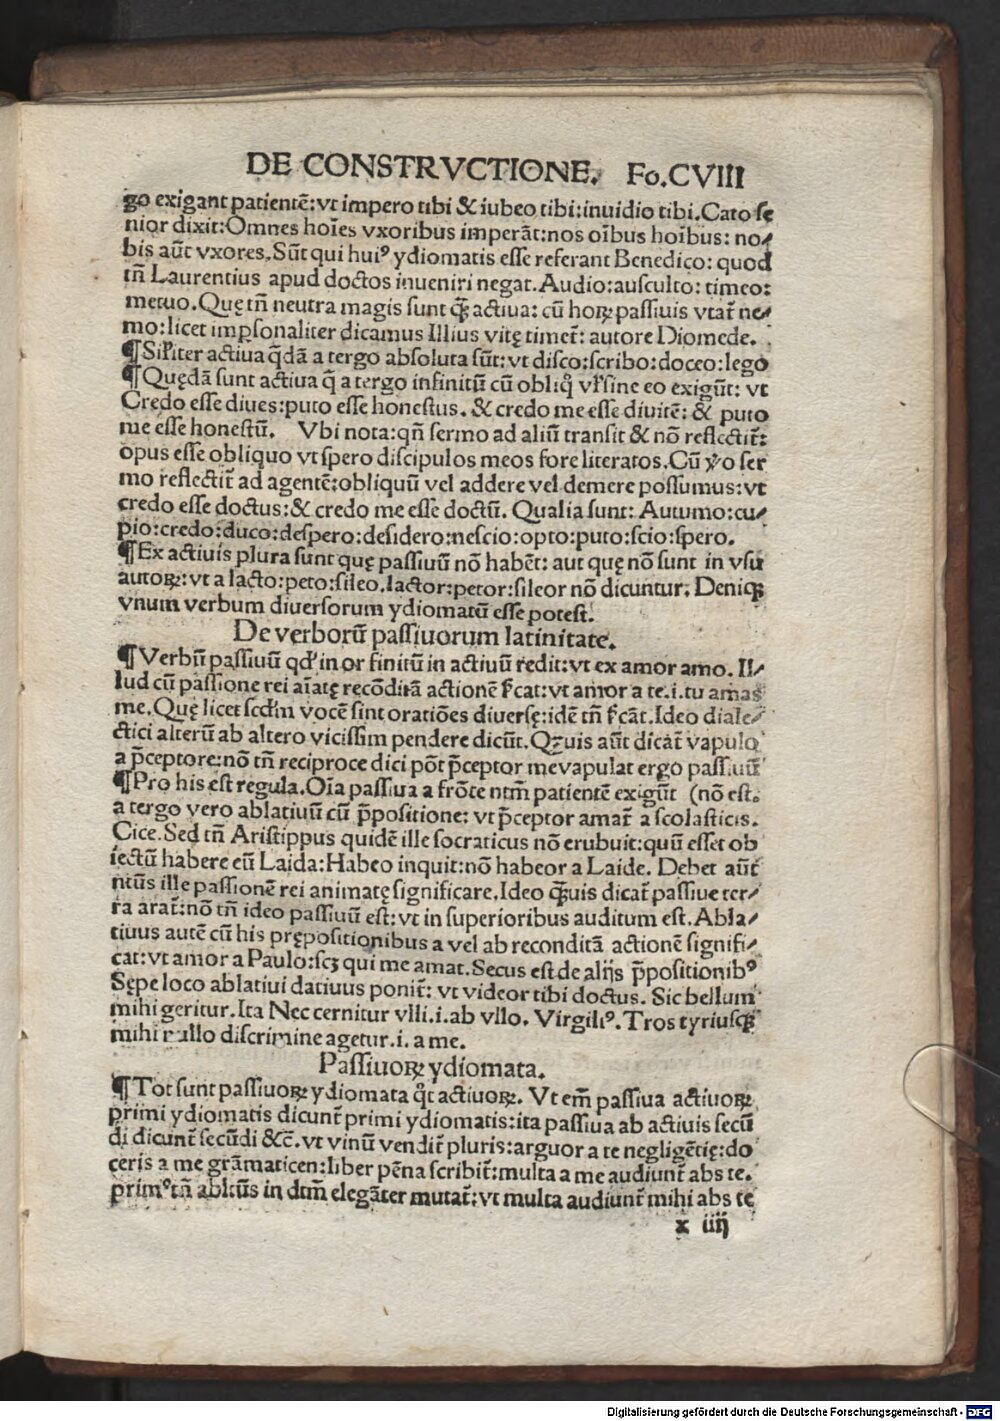 DE CONSTRVCTIONE. Fo.CVIII
go exigant patientē:vt impero tibi & iubeo tibi:inuidio tibi.Cato se
nior dixit:Omnes hoīes vxoribus imperāt:nos oībus hoībus: no/
bis aūt vxores.Sūt qui huiꝰ ydiomatis esse referant Benedico: quod
tñ Laurentius apud doctos inueniri negat.Audio:ausculto: timeo:
metuo.Quę tñ neutra magis sunt ꝙ̃ actiua: cū hoꝝ passiuis vtat᷑ ne/
mo:licet imꝑsonaliter dicamus Illius vitę timet᷑: autore Diomede.
¶Sil̓iter actiua q̄dā a tergo absoluta sūt:vt disco:scribo:doceo:lego
¶Quędā sunt actiua q̄ a tergo infinitū cū obliq̊ vl̓ sine eo exigūt: vt
Credo esse diues:puto esse honestus. & credo me esse diuitē: & puto
me esse honestū. Vbi nota:qñ sermo ad aliū transit & nō reflectit᷑:
opus esse obliquo vt spero discipulos meos fore literatos.Cū ỽo ser
mo reflectit᷑ ad agentē:obliquū vel addere vel demere possumus:vt
credo esse doctus:& credo me esse doctū. Qualia sunt: Autumo:cu/
pio:credo:duco:despero:desidero:nescio:opto:puto:scio:spero.
¶Ex actiuis plura sunt quę passiuū nō habēt: aut quę nō sunt in vsu
autoꝝ: vt a lacto:peto:sileo.lactor:petor:sileor nō dicuntur. Deniqꝫ
vnum verbum diuersorum ydiomatū esse potest.
De verborū passiuorum latinitate.
¶Verbū passiuū qd̓ in or finitū in actiuū redit:vt ex amor amo. Il/
lud cū passione rei aīatę recōditā actionē s̄ficat:vt amor a te.i.tu amas
me.Quę licet scd̓m vocē sint oratiōes diuersę:idē tñ s̄ficāt.Ideo diale/
ctici alterū ab altero vicissim pendere dicūt.Qꝫuis aūt dicat᷑ vapulo
a p̄ceptore:nō tñ reciproce dici pōt p̄ceptor me vapulat ergo passiuū
¶Pro his est regula.Oīa passiua a frōte ntm̄ patientē exigūt (nō est.
a tergo vero ablatiuū cū p̄positione: vt p̄ceptor amat᷑ a scolasticis.
Cice.Sed tñ Aristippus quidē ille socraticus nō erubuit:quū esset ob
iectū habere eū Laida:Habeo inquit:nō habeor a Laide. Debet aūt
ntūs ille passionē rei animatę significare.Ideo ꝙ̃uis dicat᷑ passiue ter/
ra arat᷑:nō tñ ideo passiuū est: vt in superioribus auditum est.Abla/
tiuus autē cū his prępositionibus a vel ab reconditā actionē signifi/
cat:vt amor a Paulo:scꝫ qui me amat.Secus est de alijs p̄positionibꝰ
Sępe loco ablatiui datiuus ponit᷑: vt videor tibi doctus. Sic bellum
mihi geritur.Ita Nec cernitur vlli.i.ab vllo. Virgiliꝰ.Tros tyriusqꝫ
mihi nullo discrimine agetur.i. a me.
Passiuoꝝ ydiomata.
¶Tot sunt passiuoꝝ ydiomata q̊t actiuoꝝ. Vt em̄ passiua actiuoꝝ
primi ydiomatis dicunt᷑ primi ydiomatis:ita passiua ab actiuis secū
di dicunt᷑ secūdi &c̄.vt vinū vendit᷑ pluris:arguor a te negligētię:do
ceris a me grāmaticen:liber pēna scribit᷑:multa a me audiunt᷑ abs te.
primꝰ tñ abltūs in dtm̄ elegāter mutat᷑: vt multa audiunt᷑ mihi abs te
x iiij
Digitalisierung gefördert durch die Deutsche Forschungsgemeinschaft - DFG